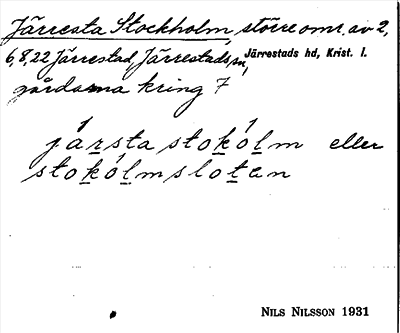 Järresta Stockholm, större omr. av 2,
6,8,22 Järrestad, Järrestads sn, Järrestads hd, Krist. l.
gårdarna kring 7
jársta stokólm eller
stokólmsloten
NILS NILSSON 1931